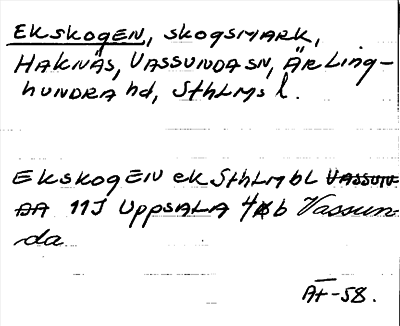 EKSKOGEN, SKOGSMARK,
HAKNÄS, VASSUNDA SN, ÄRLING-
HUNDRA hd, SthLMs l.
EKSKOGEN ek SthLM bl VASSUN-
DA 11J UPPSALA 4 b Vassun
da
AF-58.